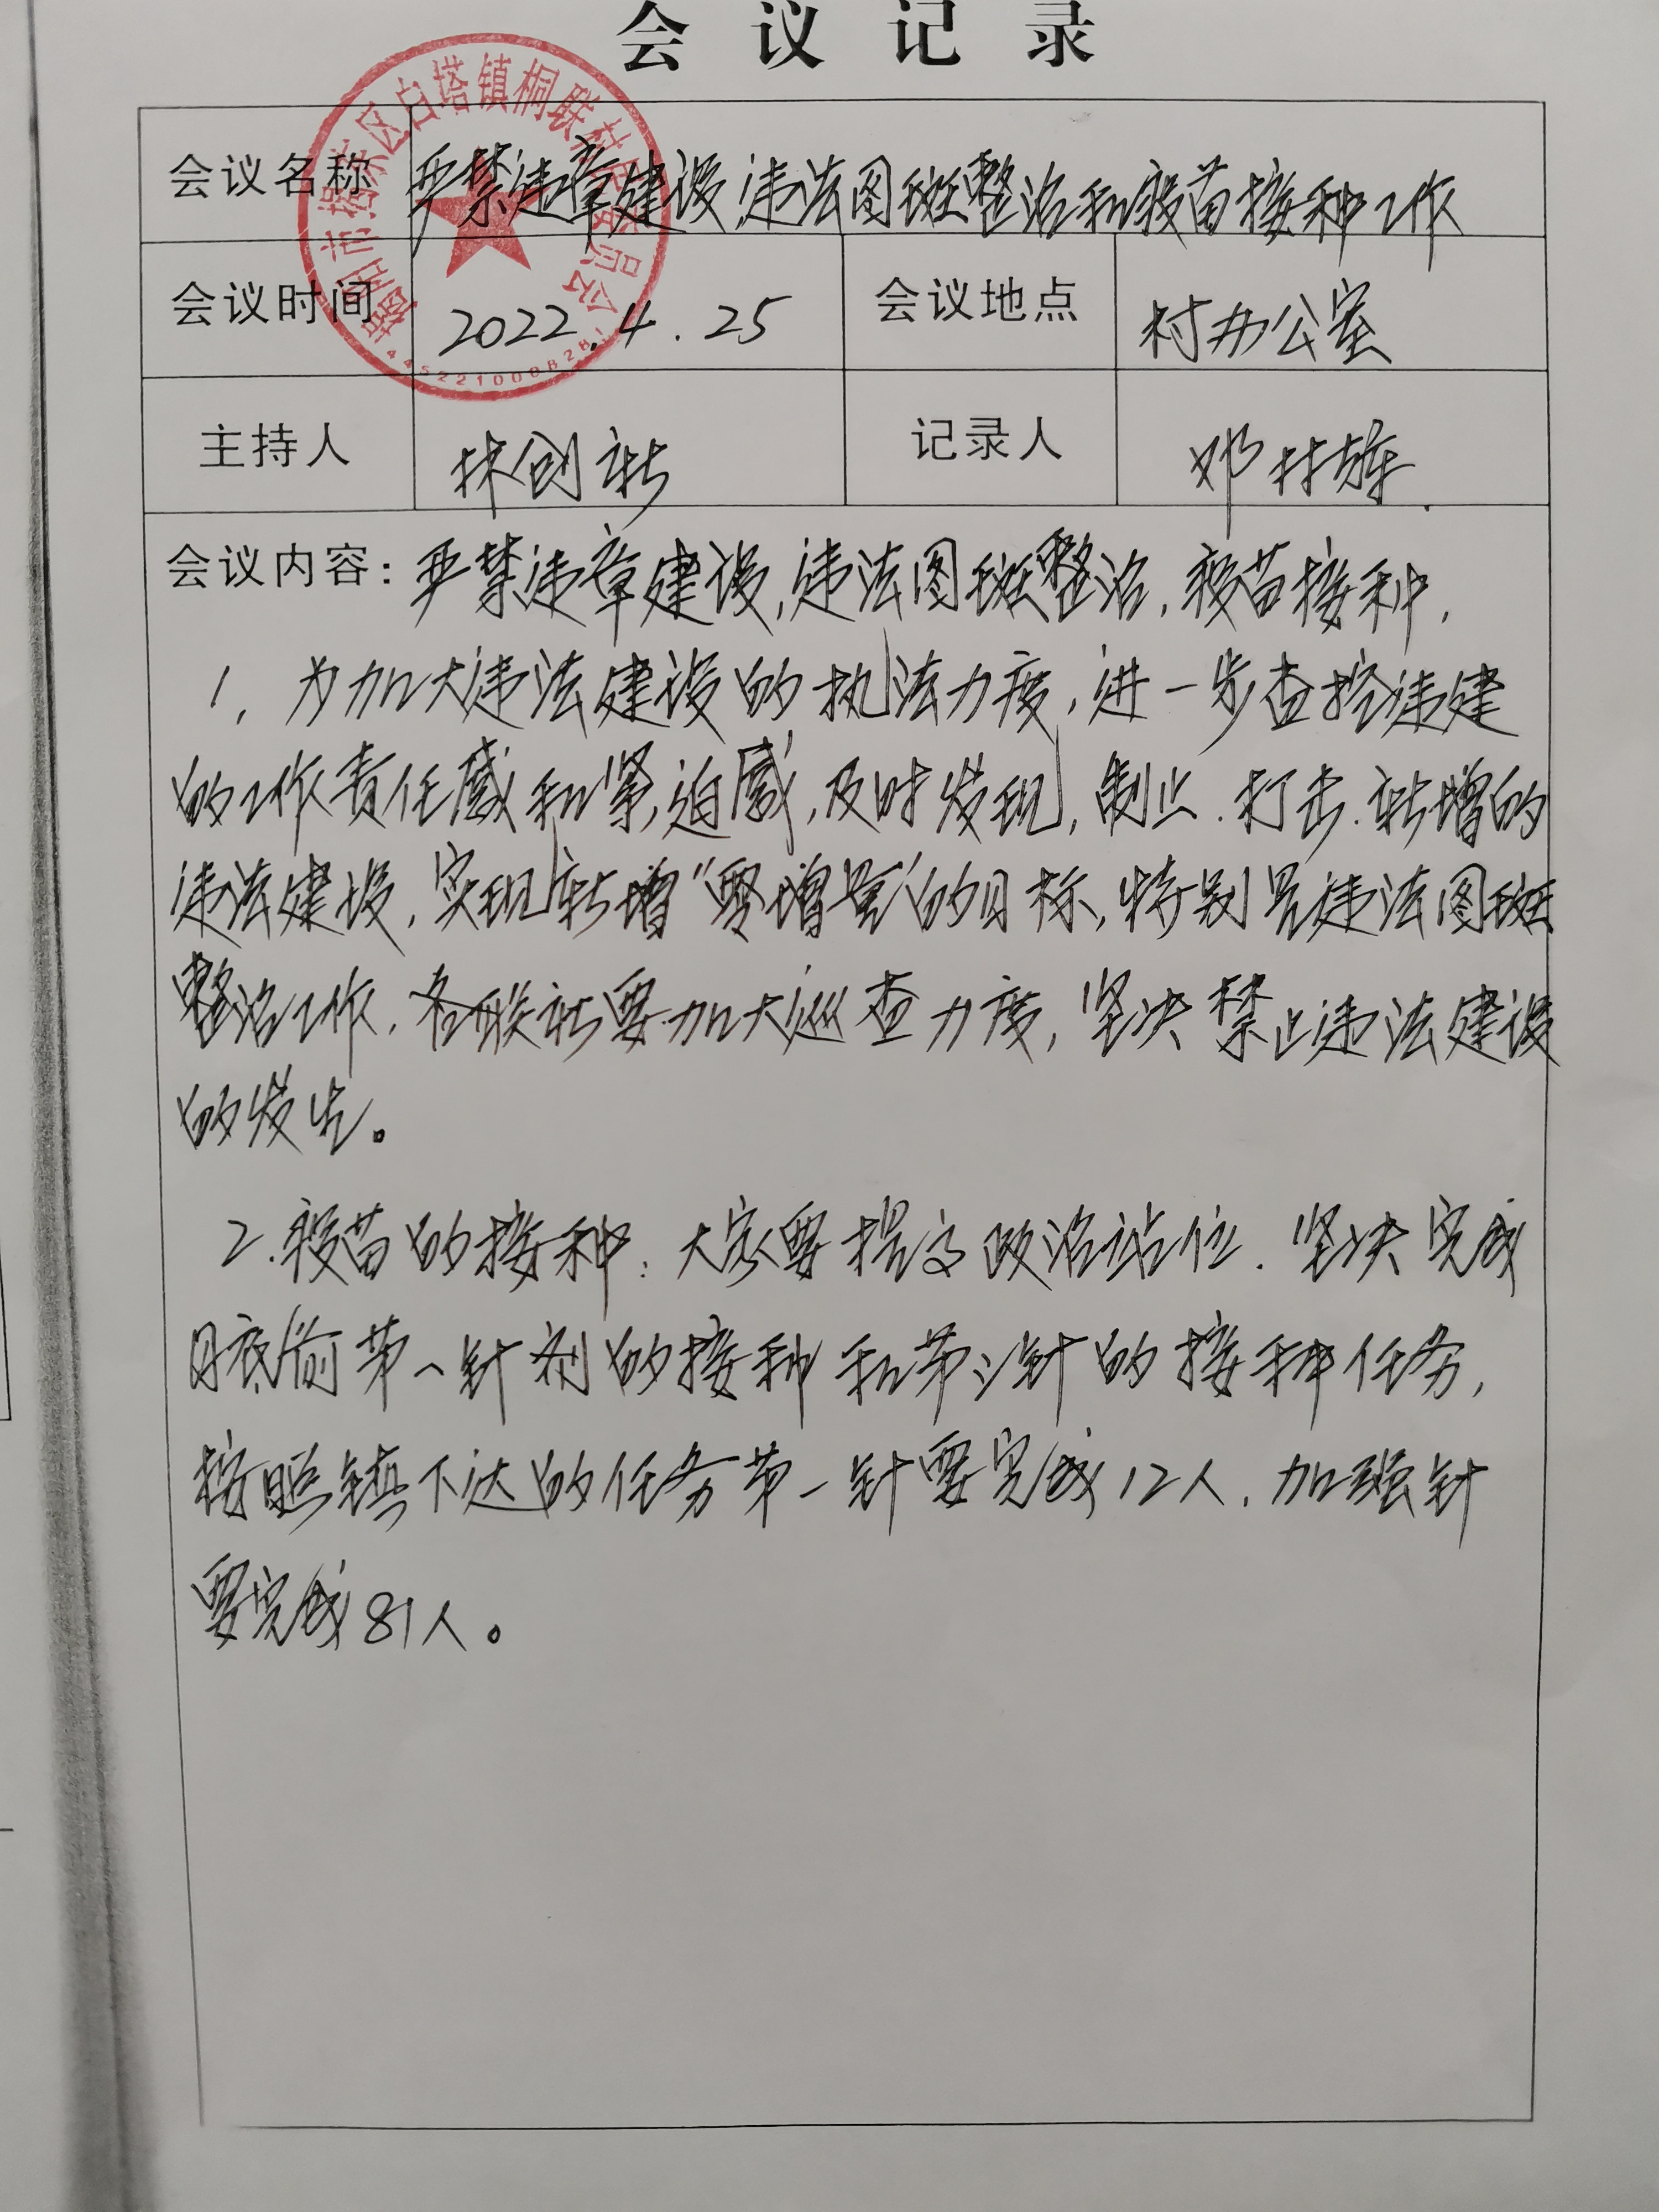 会议记录
揭阳市揭东区白塔镇桐联村民委员会
445221000828
会议名称 严禁违章建设,违法图斑整治和疫苗接种工作
会议时间 2022.4.25 会议地点 村办公室
主持人 林创新 记录人 邓林雄
会议内容: 严禁违章建设,违法图斑整治,疫苗接种,
1,为加大违法建设的执法力度,进一步查控违建
的工作责任感和紧迫感,及时发现,制止.打击.新增的
违法建设,实现新增“零增量”的目标,特别是违法图斑
整治工作,各联社要加大巡查力度,坚决禁止违法建设
的发生。
2.疫苗的接种:大家要提高政治站位.坚决完成
月底前第一针剂的接种和第三针的接种任务,
按照镇下达的任务第一针要完成12人,加强针
要完成81人。